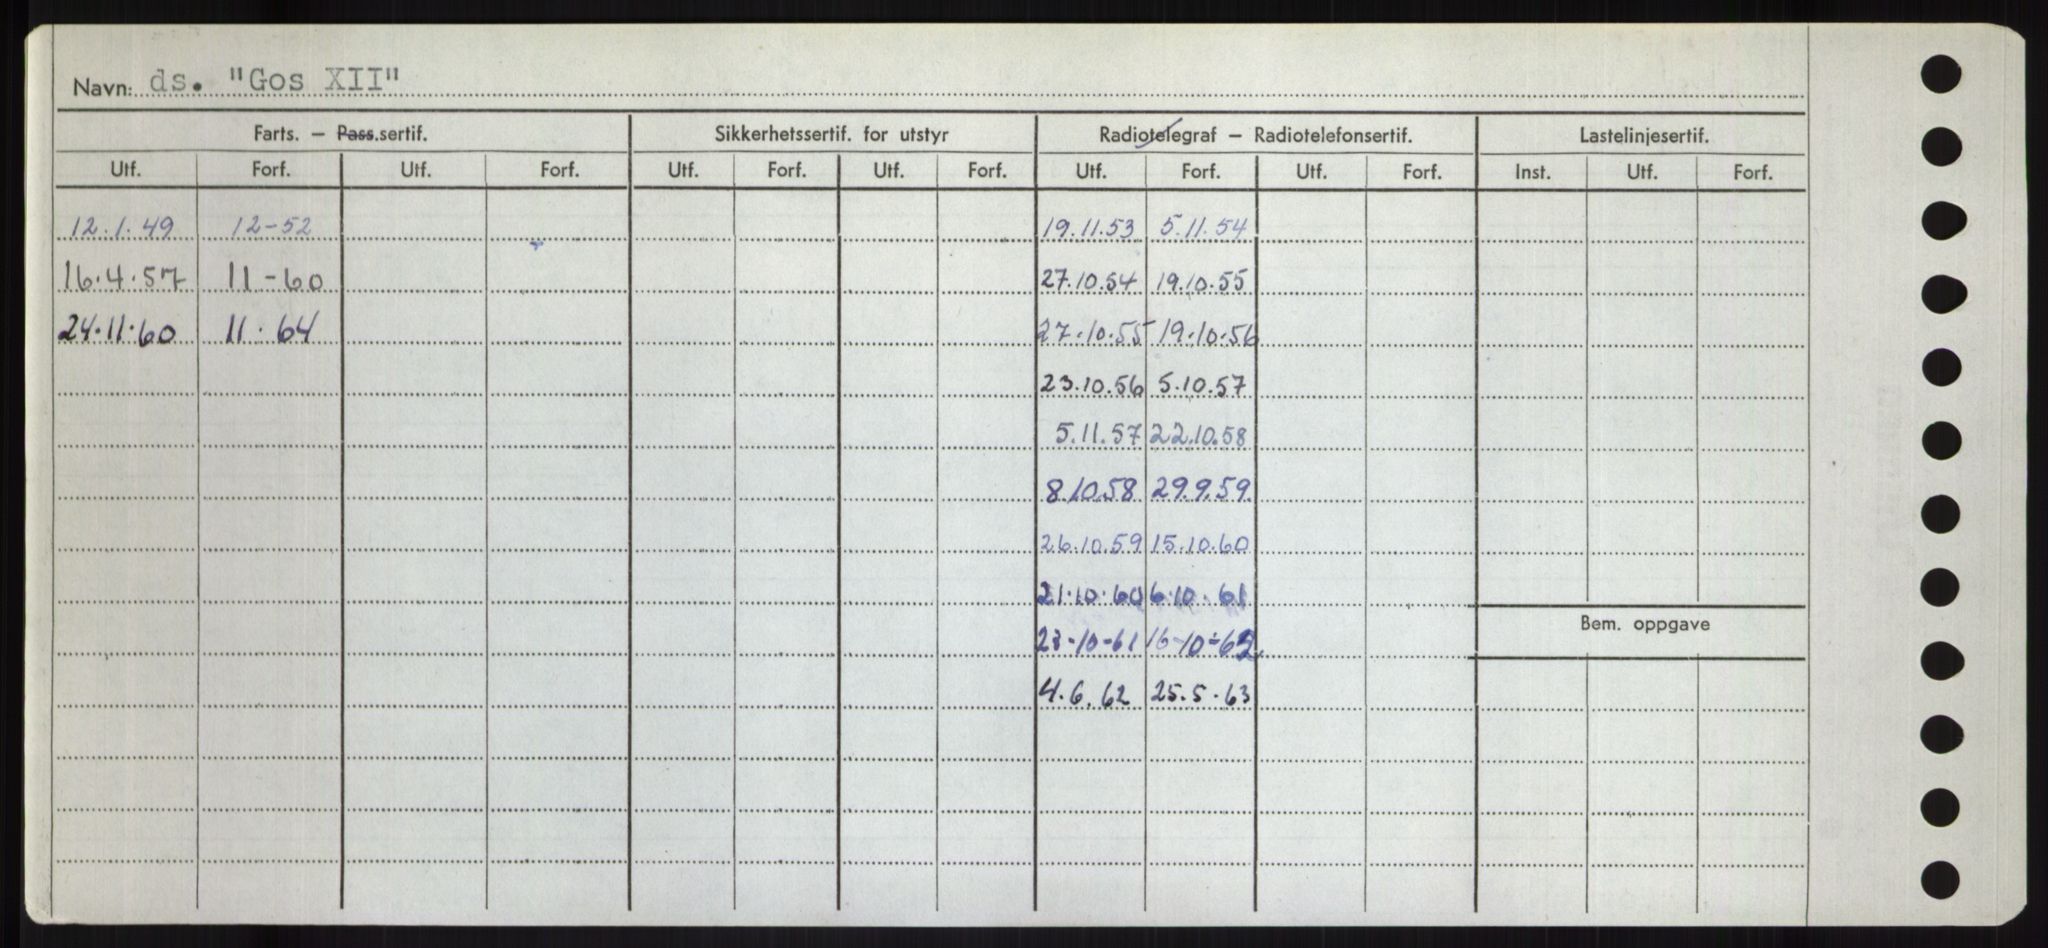 Navn: ds. "Gos XII"
Farts. – Pass.sertif. Sikkerhetssertif. for utstyr Radiotelegraf – Radiotelefonsertif. Lastelinjesertif.
Utf. Forf. Utf. Forf. Utf. Forf. Utf. Forf. Utf. Forf. Utf. Forf. Inst. Utf. Forf.
12.1.49 12-52 19.11.53 5.11.54
16.4.57 11-60 27.10.54 19.10.55
24.11.60 11.64 27.10.55 19.10.56
23.10.56 5.10.57
5.11.57 22.10.58
8.10.58 29.9.59
26.10.59 15.10.60
21.10.60 6.10.61
Bem. oppgave
23-10-61 16-10-62
4.6.62 25.5.63